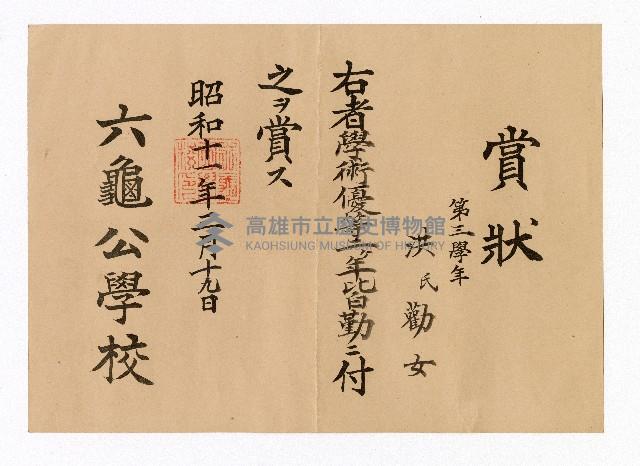 賞狀
第三學年
洪氏勸女
右者學術優等三ヶ年皆勤ニ付
之ヲ賞ス
昭和十一年三月十九日
六龜公學校
高雄市立歷史博物館
KAOHSIUNG MUSEUM OF HISTORY